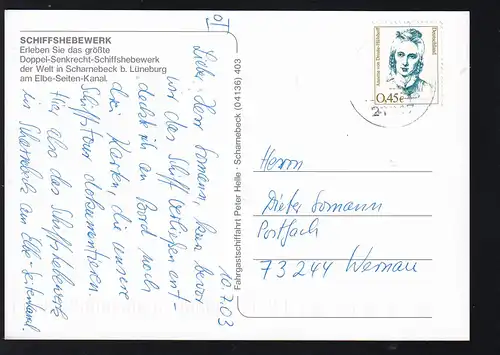 SCHIFFSHEBEWERK
Erleben Sie das größte
Doppel-Senkrecht-Schiffshebewerk
der Welt in Scharnebeck b. Lüneburg
am Elbe-Seiten-Kanal.
10.7.03
Lieber Herr Somann, kurz bevor
wir das Schiff verließen ent-
deckte ich an Bord noch
die Karten die unsere
Schiffstour dokumentieren.
Hier also das Schiffshebewerk
in Scharnebeck am Elbe-Seitenkanal.
Fahrgastschiffahrt Peter Helle · Scharnebeck (04136) 403
Annette von Droste-Hülshoff
Deutschland
0,45€
Herrn
Dieter Somann
Postfach
73244 Wernau